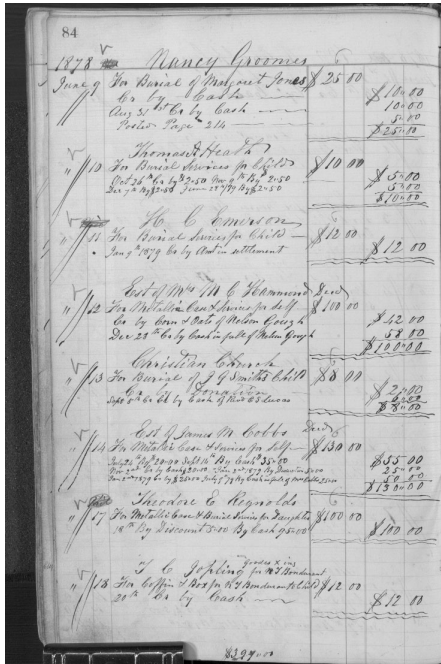 84
1878 Nancy Groomes
June 9 For Burial of Margaret Jones $25 00
Cr by Cash $10 00
Aug 31st Cr by Cash 10 00
Posted Page 214 5 00
$25 00
Thomas Heath
" 10 For Burial Services for Child $10 00
Oct 26th Cr by $2.50 Nov 9th By $2.50 $5 00
Dec 7th By $2.50 June 27/79 By $2.50 5 00
$10 00
H. C. Emerson
" 11 For Burial Services for Child $12 00
Jan 9th 1879 Cr by Amt in settlement $12 00
Est of Mrs M C Hammond Decd
" 12 For Metallic Case & Services for Self $100 00
Cr by Corn & Oats of Nelson Gough $42 00
Dec 23th Cr by Cash in full of Nelson Gough 58 00
$100 00
Christian Church
" 13 For Burial of J G Smiths Child $8 00
Cr by Donation $2 00
Sept 5th Cr by Cash of 6 00
$8 00
Est of James M. Cobbs Decd
" 14 For Metallic Case & Services for Self $130 00
By Cash 35 00 $55 00
Nov 20th Cr by Cash 20.00 25 00
50 00
$130 00
Theodore E Reynolds
" 17 For Metallic Case & Burial Services for Daughter $100 00
18th By Discount 5.00 By Cash 95.00 $100 00
T. C. Jopling for R T Bondurant
" 18 For Coffin & Box for R T Bondurants Child $12 00
20th Cr by Cash $12 00
$397.00